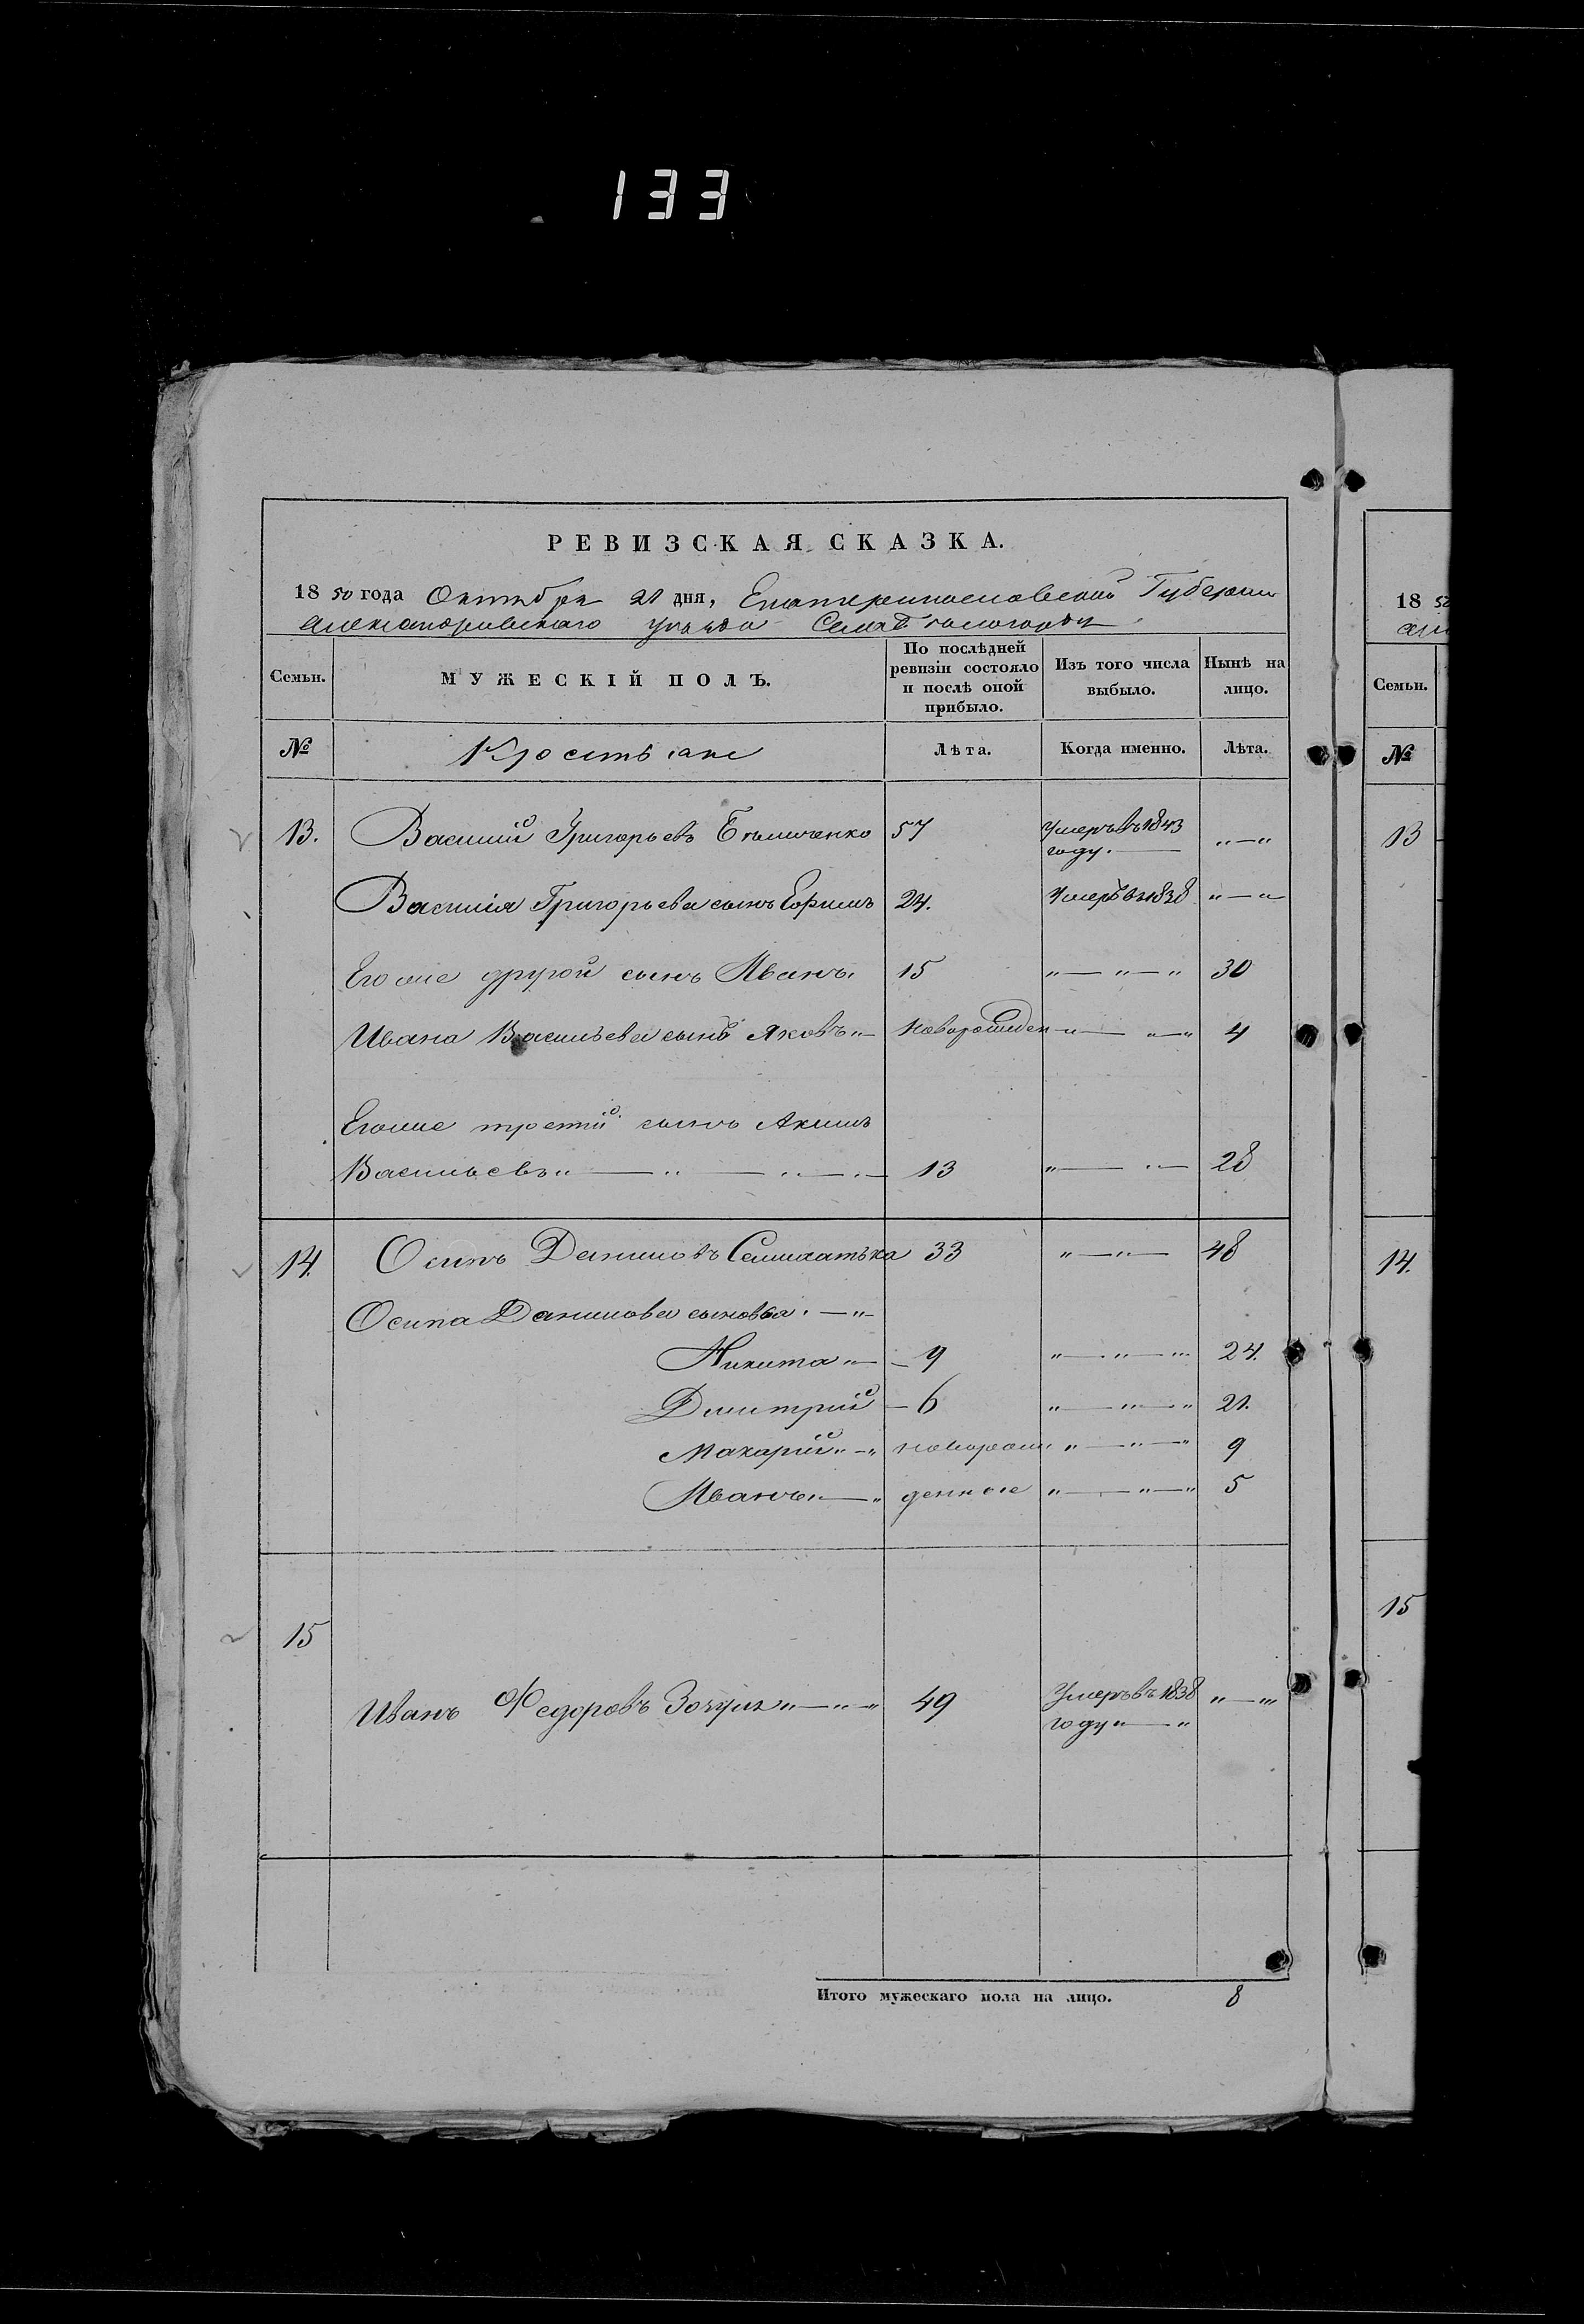 133
РЕВИЗСКАЯ СКАЗКА.
1850 года Октября 21 дня, Екатеринославской Губернии
Александровскаго уезда Села
Семьи.
МУЖЕСКІЙ ПОЛЪ.
По послѣдней ревизіи состояло и послѣ оной прибыло.
Изъ того числа выбыло.
Нынѣ на лицо.
№
Крестьяне
Лѣта.
Когда именно.
Лѣта.
13. Василий Григорьевъ 57 Умеръ въ 1843 году. „—„
Василія Григорьева сынъ Ефимъ 24. Умеръ въ 1838 „—„
Егоже другой сынъ Иванъ. 15 „—„—„ 30
Ивана Васильева сынъ Яковъ „ новорожден „—„—„ 4
Егоже третий сынъ Акимъ
Васильевъ „—„—„—„— 13 „—„— 28
14. Осипъ Даниловъ 33 „—„— 48
Осипа Данилова сыновья . —„
Никита „— 9 „—„—„ 24.
Дмитрий — 6 „—„—„ 21.
Макарий „—„ новорож „—„—„ 9
Иванъ „—„ денные „—„—„ 5
15
Иванъ Федоровъ „—„—„ 49 Умеръ въ 1838 году „—„ „—„
Итого мужескаго пола на лицо. 8
18 5
Семьи.
№
13
14.
15